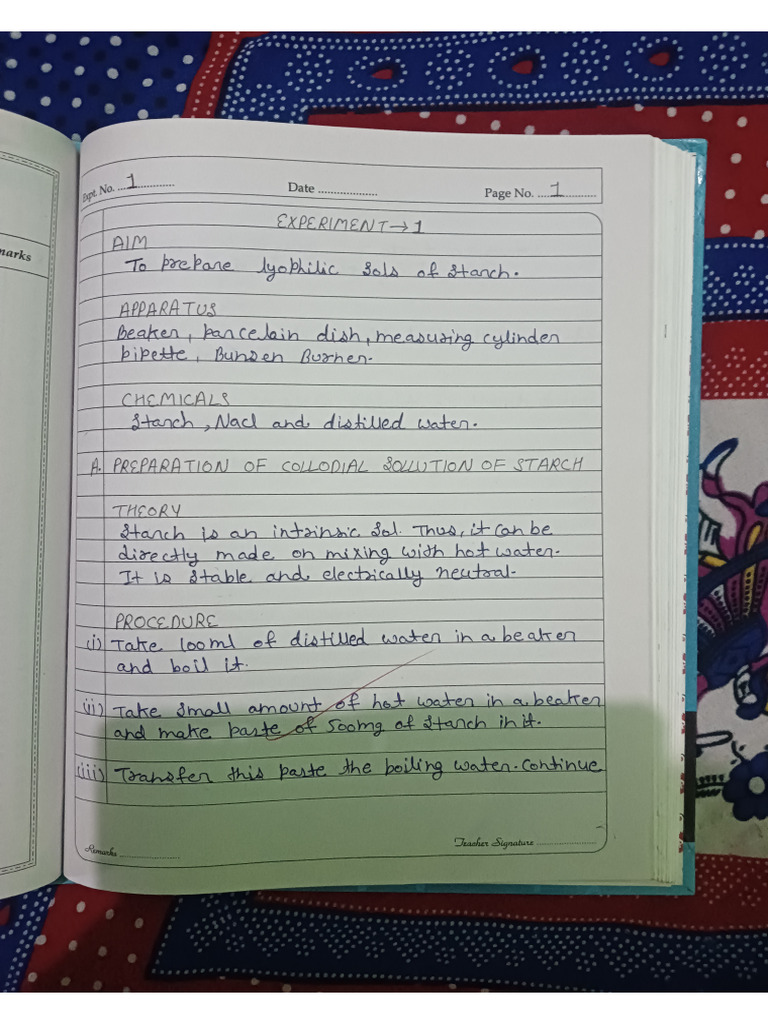 marks
Expt. No. ...1..............
Date ...................
Page No. ....1...........
EXPERIMENT → 1
AIM
To prepare lyophilic sols of starch.
APPARATUS
Beaker, parcelain dish, measuring cylinder
pipette, Bunsen Burner.
CHEMICALS
Starch, Nacl and distilled water.
A. PREPARATION OF COLLODIAL SOLLUTION OF STARCH
THEORY
Starch is an intrinsic sol. Thus, it can be
directly made on mixing with hot water.
It is stable and electrically neutral.
PROCEDURE
(i) Take 100ml of distilled water in a beaker
and boil it.
(ii) Take small amount of hot water in a beaker
and make paste of 500mg of starch in it.
(iii) Transfer this paste the boiling water. Continue
Remarks ....................
Teacher Signature ....................